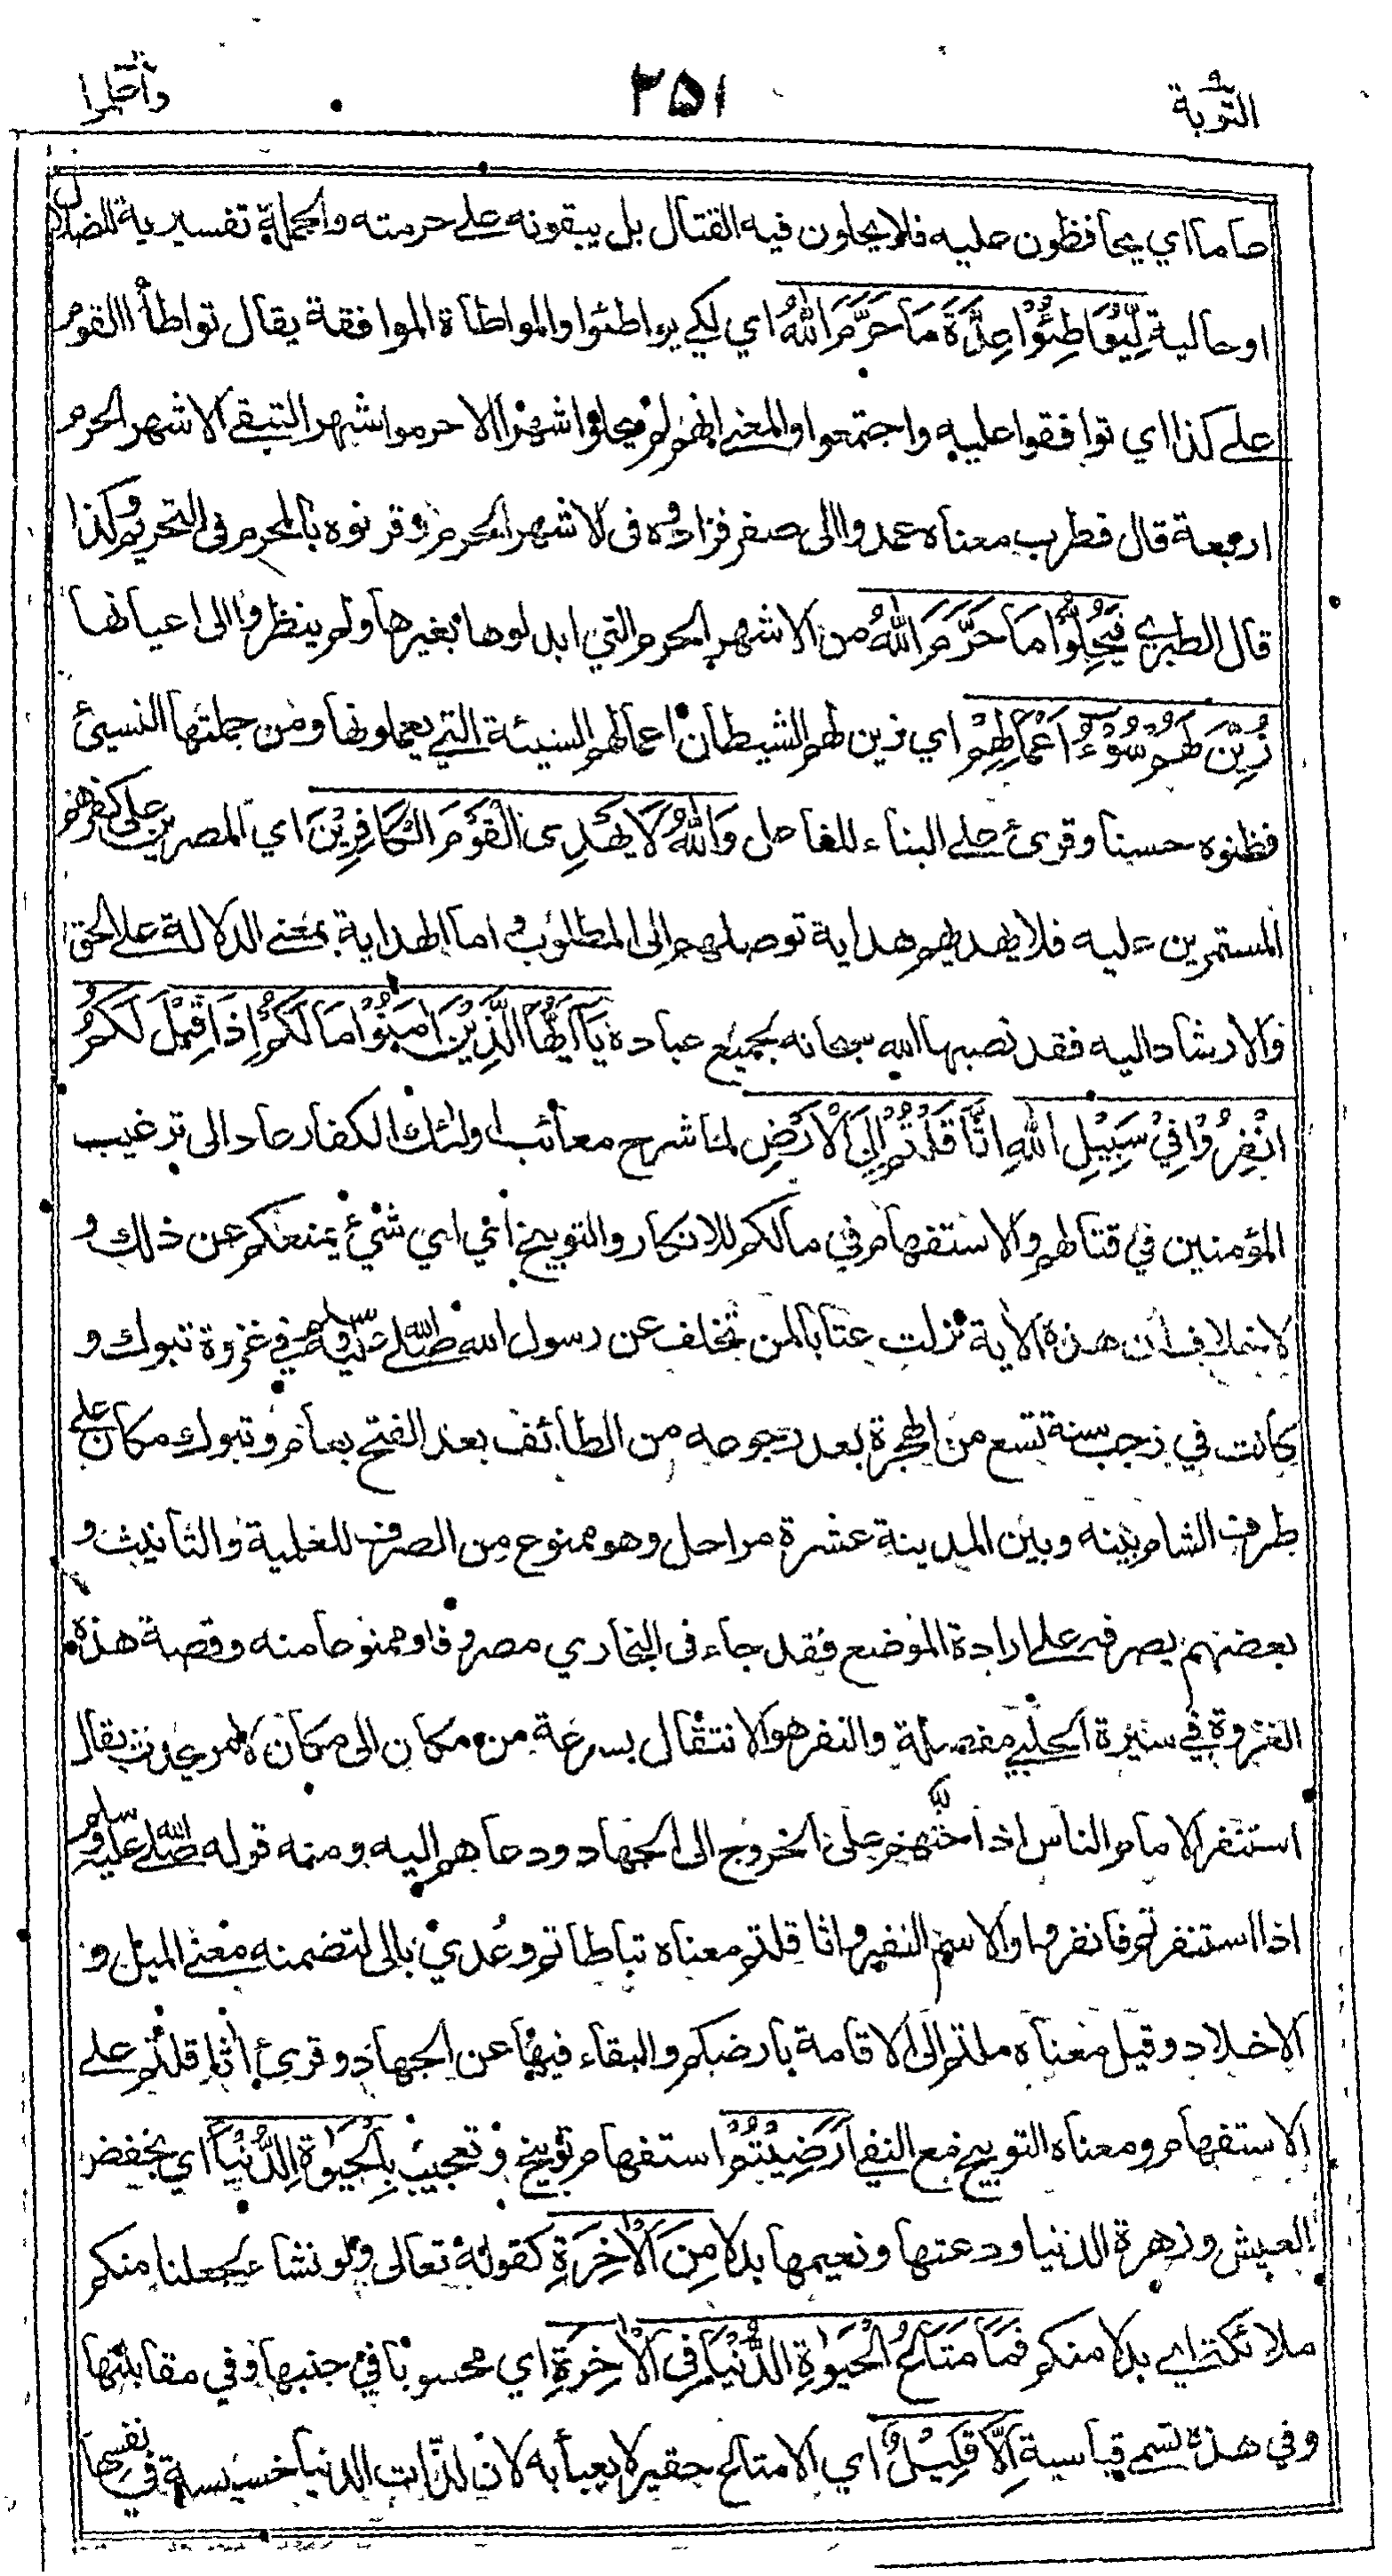 التوبة ٩ ٢٥١ واعلموا
عاما اي يحافظون عليه فلا يحلون فيه القتال بل يبقونه على حرمته والجملة تفسيرية للضلال
او حالية لِّيُوَاطِئُوْا عِدَّةَ مَا حَرَّمَ اللهُ اي لكي يواطئوا والمواطاة الموافقة يقال تواطأ القوم
على كذا اي توافقوا عليه واجتمعوا والمعنى انهم لم يحلوا شهرا الا حرموا شهر التبقى الاشهر الحرم
اربعة قال قطرب معناه عمدوا الى صفر فزادوه فى الاشهر الحرم وقرنوه بالمحرم فى التحريم وكذا
قال الطبري فَيُحِلُّوْا مَا حَرَّمَ اللهُ من الاشهر الحرم التي ابدلوها بغيرها ولم ينظروا الى اعيانها
زُيِّنَ لَهُمْ سُوْٓءُ اَعْمَالِهِمْ اي زين لهم الشيطان اعمالهم السيئة التي يعملونها ومن جملتها النسيئ
فظنوه حسنا وقرئ على البناء للفاعل وَاللهُ لَا يَهْدِى الْقَوْمَ الْكَافِرِيْنَ اي المصرين على كفرهم
المستمرين عليه فلا يهديهم هداية توصلهم الى المطلوب واما الهداية بمعنى الدلالة على الحق
والارشاد اليه فقد نصبها الله سبحانه لجميع عباده يَآ اَيُّهَا الَّذِيْنَ اٰمَنُوْا مَا لَكُمْ اِذَا قِيْلَ لَكُمُ
انْفِرُوْا فِيْ سَبِيْلِ اللهِ اثَّاقَلْتُمْ اِلَى الْاَرْضِ لما شرح معائب اولئك الكفار عاد الى ترغيب
المؤمنين في قتالهم والاستفهام في مالكم للانكار والتوبيخ اي اي شيئ يمنعكم عن ذلك و
لا خلاف ان هذه الأية نزلت عتابا لمن تخلف عن رسول الله صلى الله عليه وسلم في غزوة تبوك و
كانت في رجب سنة تسع من الهجرة بعد رجوعه من الطائف بعد الفتح بعام وتبوك مكان على
طرف الشام بينه وبين المدينة عشرة مراحل وهو ممنوع من الصرف للعلمية والتانيث و
بعضهم يصرفه على ارادة الموضع فقد جاء فى البخاري مصروفا وممنوعا منه وقصة هذه
الغزوة في سيرة الحلبي مفصلة والنفر هو الانتقال بسرعة من مكان الى مكان لامر يحدث يقال
استنفر الامام الناس اذا حثهم على الخروج الى الجهاد ودعاهم اليه ومنه قوله صلى الله عليه وسلم
اذا استنفرتم فانفروا والاسم النفير واثاقلتم معناه تباطاتم وعُدي بالى لتضمنه معنى الميل و
الاخلاد وقيل معناه ملتم الى الاقامة بارضكم والبقاء فيها عن الجهاد وقرئ أثاقلتم على
الاستفهام ومعناه التوبيخ مع النفي اَرَضِيْتُمْ استفهام توبيخ وتعجيب بِالْحَيٰوةِ الدُّنْيَا اي بخفض
العيش وزهرة الدنيا ودعتها ونعيمها بدلا مِنَ الْاٰخِرَةِ كقوله تعالى ولو نشاء لجعلنا منكم
ملائكة اي بدلا منكم فَمَا مَتَاعُ الْحَيٰوةِ الدُّنْيَا فِى الْاٰخِرَةِ اي محسوبا في جنبها وفي مقابلتها
وفي هذه تسمى قياسية اِلَّا قَلِيْلٌ اي الا متاع حقير لا يعبأ به لان لذات الدنيا خسيسة في نفسها